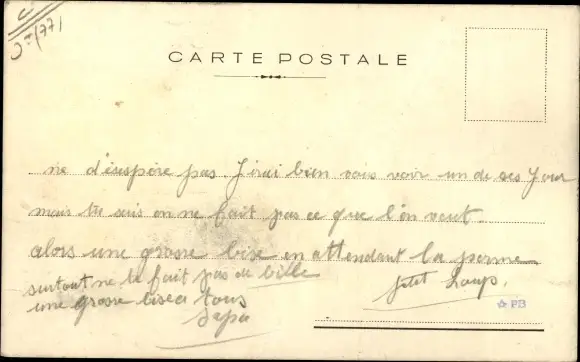 CARTE POSTALE
ne d'ésespère pas J'irai bien vois voir un de ses Jour
mais tu sais on ne fait pas ce que l'on veut.
alors une grosse bise en attendant la
surtout ne te fait pas de bille
petit Loup.
une grosse bise a tous
PB